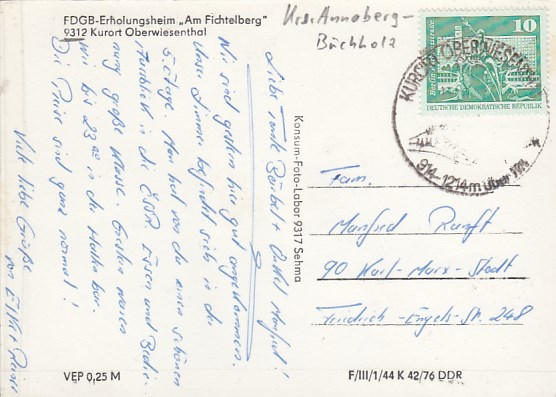 FDGB-Erholungsheim „Am Fichtelberg"
9312 Kurort Oberwiesenthal
Krs. Annaberg-
Buchholz
10
DEUTSCHE DEMOKRATISCHE REPUBLIK
KURORT OBERWIESENTHAL
914-1214m über NN
Liebe Tante Bärbel + Onkel Manfred!
Wir sind gestern hier gut angekommen.
Unser Zimmer befindet sich in der
5. Etage. Man hat von da einen schönen
Ausblick in die ČSSR. Essen und Bedie-
nung große Klasse. Gestern waren
wir bis 23 00 in der
Die Preise sind ganz normal!
Viele liebe Grüße
von
Konsum-Foto-Labor 9317 Sehma
Fam.
Manfred Ranft
90 Karl-Marx-Stadt
Friedrich-Engels-Str. 248
VEP 0,25 M
F/III/1/44 K 42/76 DDR